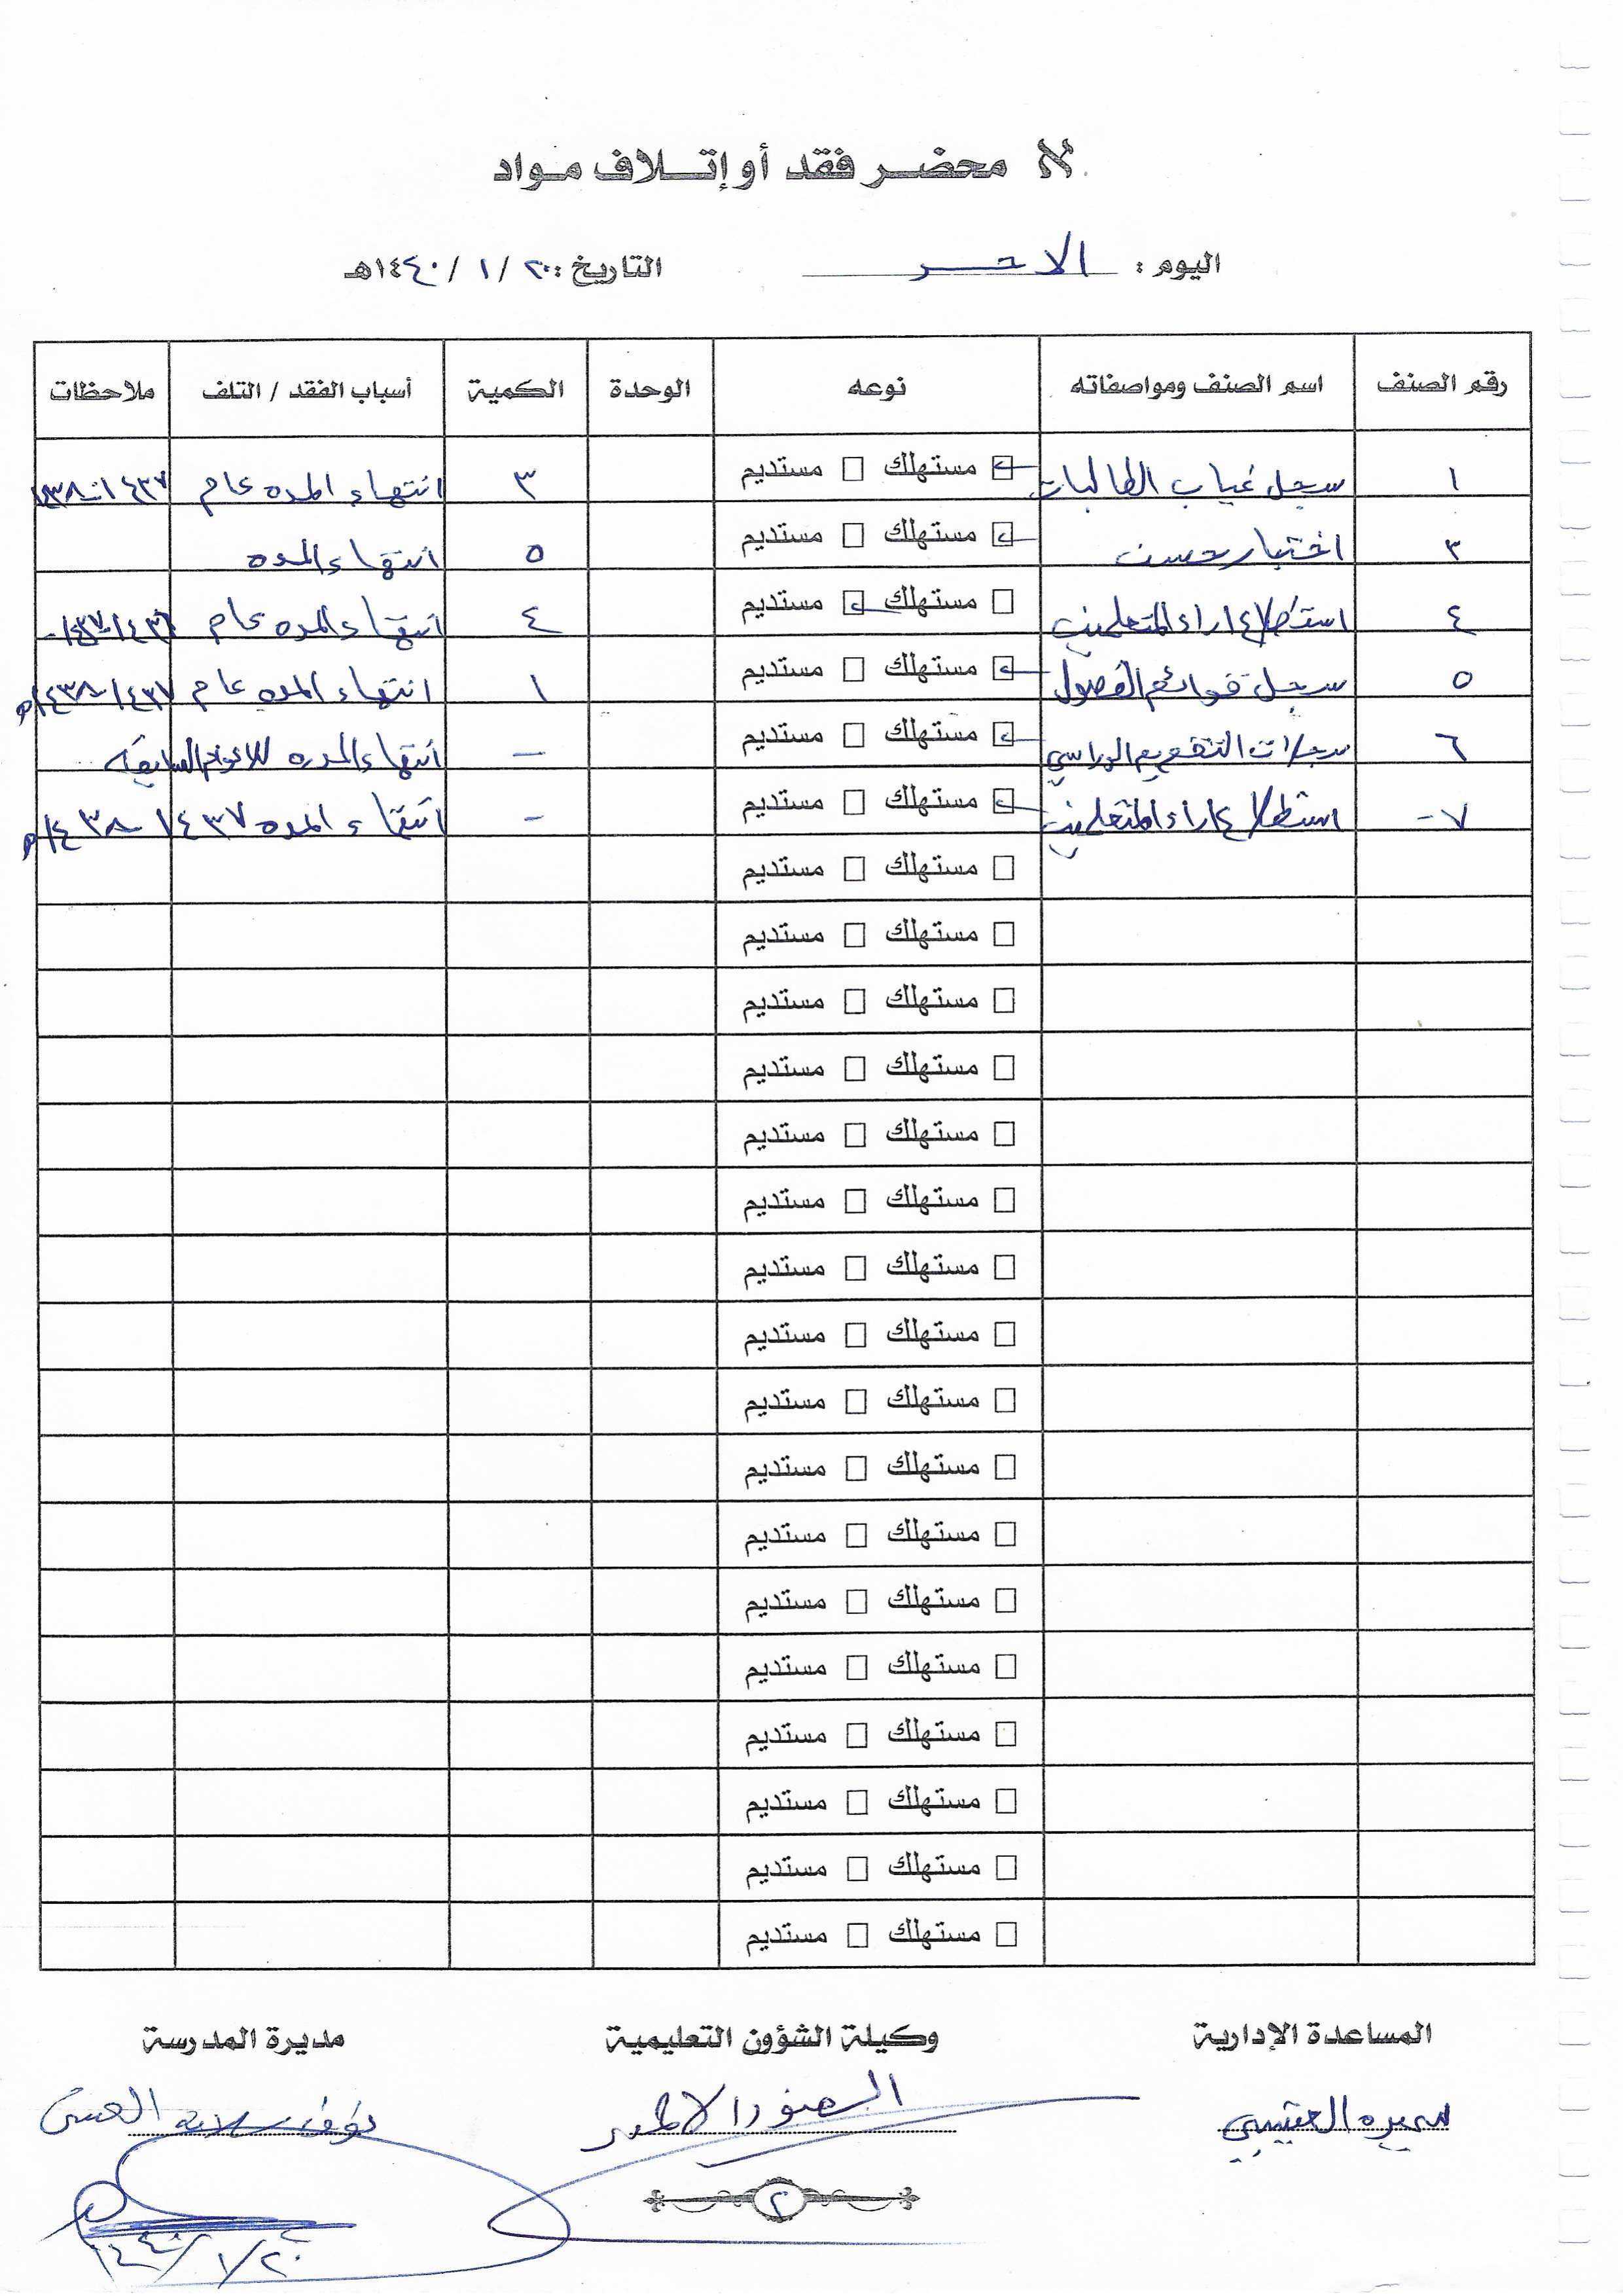 محضر فقد أو إتلاف مواد
اليوم : الاحد التاريخ : ٢٠ / ١ / ١٤٤٠هـ
رقم الصنف اسم الصنف ومواصفاته نوعه الوحدة الكمية أسباب الفقد / التلف ملاحظات
١ سجل غياب الطالبات ☑ مستهلك ☐ مستديم ٣ انتهاء المده عام ١٤٣٧-١٤٣٨
٣ اختبار حسن ☑ مستهلك ☐ مستديم ٥ انتهاء المده
٤ استطلاع اراء المتعلمين ☐ مستهلك ☑ مستديم ٤ انتهاء المده عام
٥ سجل قوائم الفصول ☑ مستهلك ☐ مستديم ١ انتهاء المده عام ١٤٣٧-١٤٣٨هـ
٦ سجلات التقويم الدراسي ☑ مستهلك ☐ مستديم - انتهاء المده للاعوام السابقة
٧- استطلاع اراء المتعلمين ☑ مستهلك ☐ مستديم - انتهاء المده ١٤٣٧-١٤٣٨هـ
☐ مستهلك ☐ مستديم
☐ مستهلك ☐ مستديم
☐ مستهلك ☐ مستديم
☐ مستهلك ☐ مستديم
☐ مستهلك ☐ مستديم
☐ مستهلك ☐ مستديم
☐ مستهلك ☐ مستديم
☐ مستهلك ☐ مستديم
☐ مستهلك ☐ مستديم
☐ مستهلك ☐ مستديم
☐ مستهلك ☐ مستديم
☐ مستهلك ☐ مستديم
☐ مستهلك ☐ مستديم
☐ مستهلك ☐ مستديم
☐ مستهلك ☐ مستديم
☐ مستهلك ☐ مستديم
☐ مستهلك ☐ مستديم
المساعدة الإدارية وكيلة الشؤون التعليمية مديرة المدرسة
العتيبي
٢
١٤٤٠/١/٢٠